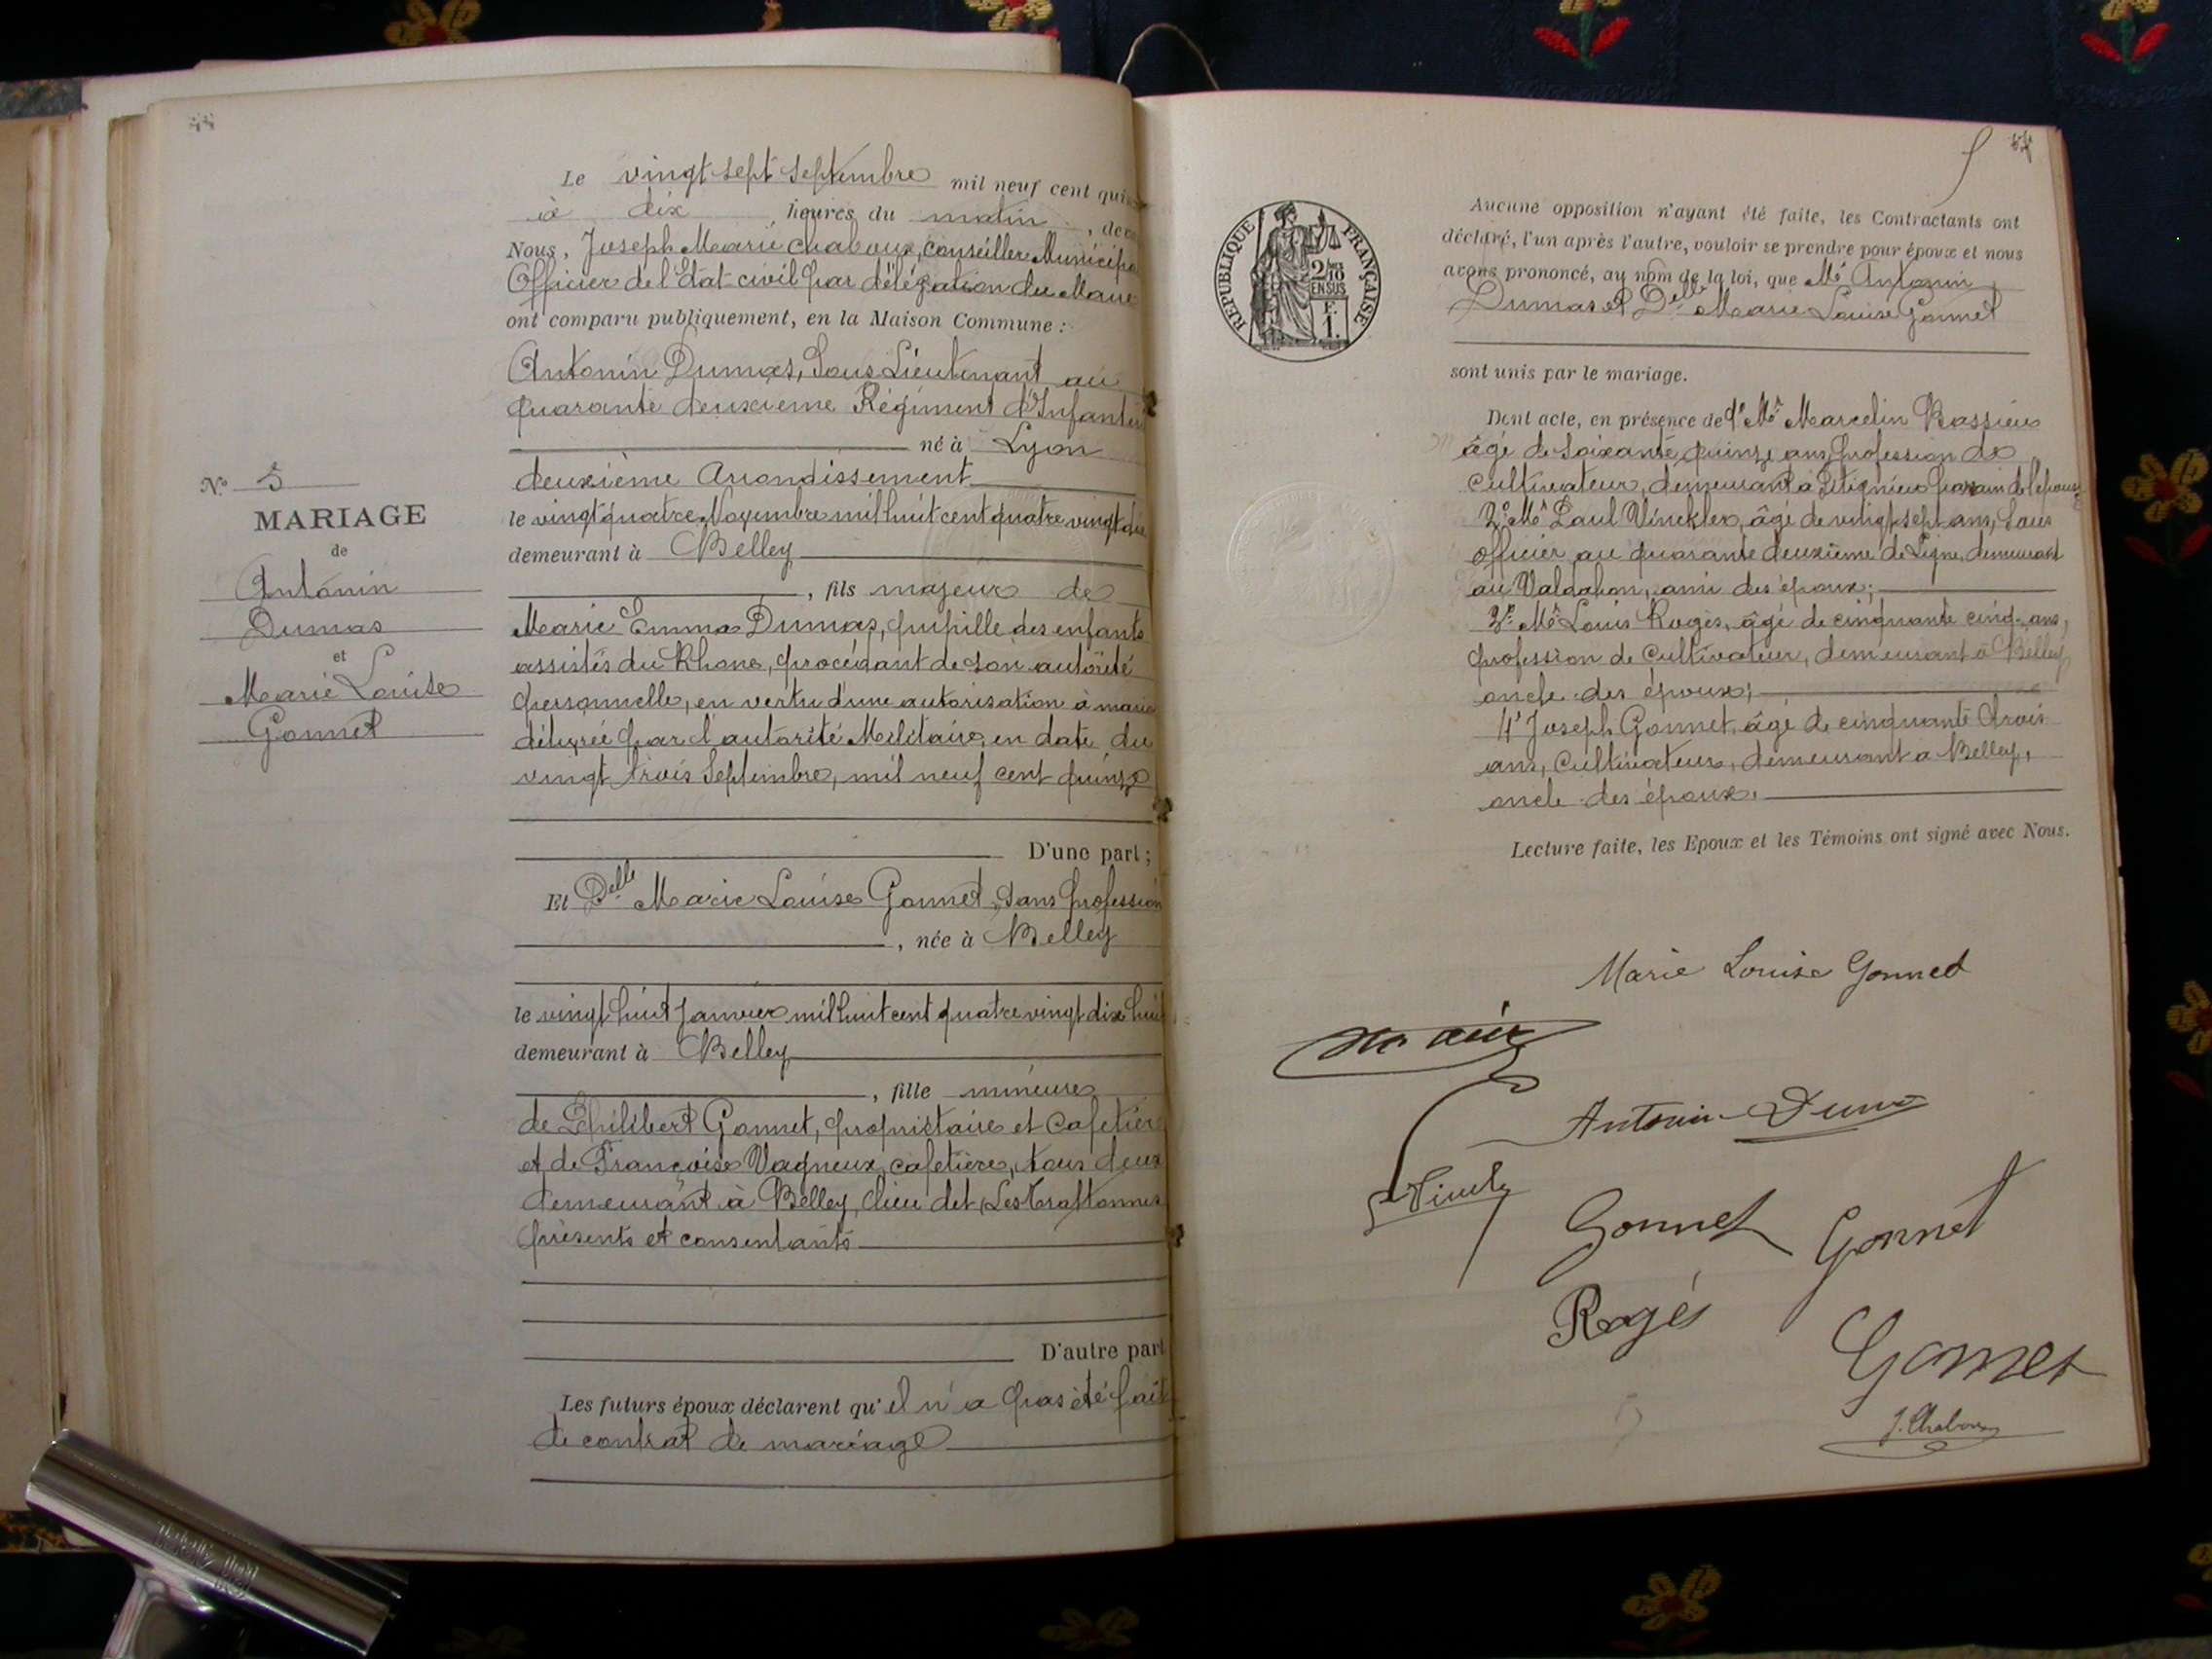 44
Le vingt sept Septembre mil neuf cent quin
à dix heures du matin, de
Nous, Joseph Marie Chaboux, conseiller Municipa
Officier de l'Etat-civil par délégation du Maire
ont comparu publiquement, en la Maison Commune :
Antonin Dumas, Sous-Lieutenant au
quarante deuxième Régiment d'Infanterie
né à Lyon
deuxième Arrondissement
le vingt quatre Novembre mil huit cent quatre vingt dix
demeurant à Belley
, fils majeur de
Marie Emma Dumas, pupille des enfants
assistés du Rhone, procédant de son autorité
personnelle, en vertu d'une autorisation à marier
délivrée par l'autorité Militaire en date du
vingt trois Septembre, mil neuf cent quinze
D'une part ;
Et Delle Marie Louise Gonnet, sans profession
, née à Belley
le vingt huit Janvier mil huit cent quatre vingt dix huit
demeurant à Belley
, fille mineure
de Philibert Gonnet, propriétaire et Cafetier
et de Françoise Vagneux, cafetière, tous deux
demeurant à Belley, lieu dit,
présents et consentants
D'autre part
Les futurs époux déclarent qu'il n'a pas été fait
de contrat de mariage
No 5
MARIAGE
de
Antonin
Dumas
et
Marie Louise
Gonnet
REPUBLIQUE FRANÇAISE
2/10
EN SUS
F.
1.
Aucune opposition n'ayant été faite, les Contractants ont
déclaré, l'un après l'autre, vouloir se prendre pour époux et nous
avons prononcé, au nom de la loi, que Mr Antonin
Dumas et Delle Marie Louise Gonnet
sont unis par le mariage.
Dont acte, en présence de 1° Mr Marcelin
âgé de soixante quinze ans, profession de
cultivateur, demeurant à parrain de l'épouse
2° Mr Paul Vinckler, âgé de vingt sept ans, Sous
officier au quarante deuxième de Ligne, demeurant
au Valdahon, ami des époux ;
3° Mr Louis Rogès, âgé de cinquante cinq ans,
profession de cultivateur, demeurant à Belley,
oncle des époux ;
4° Joseph Gonnet, âgé de cinquante trois
ans, Cultivateur, demeurant à Belley,
oncle des époux.
Lecture faite, les Epoux et les Témoins ont signé avec Nous.
Marie Louise Gonnet
Antonin Dumas
Gonnet Gonnet
Rogès
Gonnet
J. Chaboux